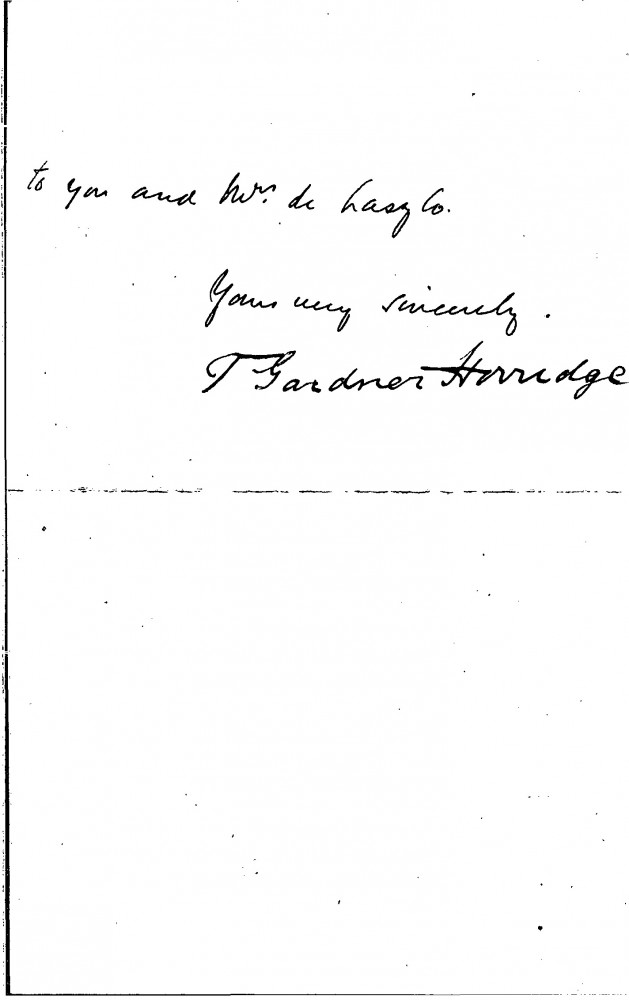 to you and Mrs. de Laszlo.
Yours very sincerely.
T Gardner Horridge